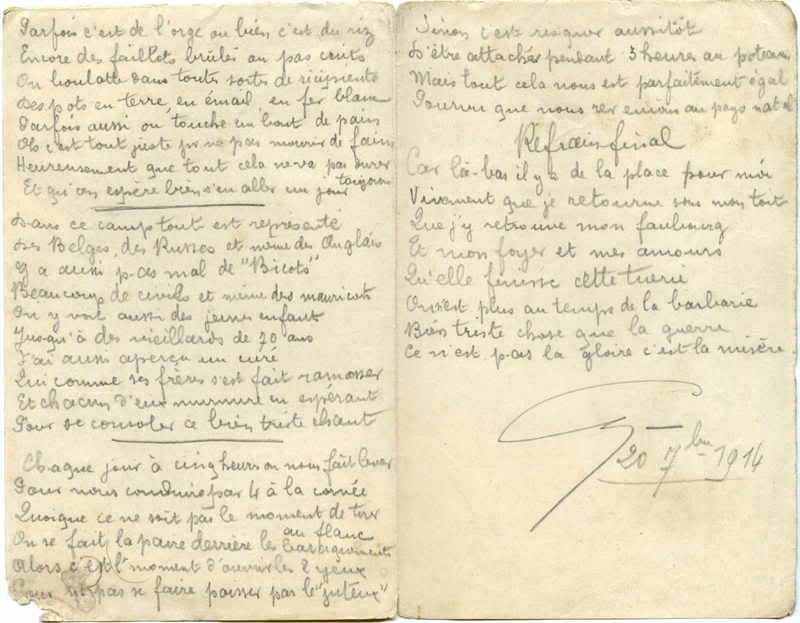 Parfois c'est de l'orge ou bien c'est du riz
Encore des faillots brûlés ou pas cuits
On boulotte dans toutes sortes de récipients
Des pots en terre, en émail, en fer blanc
Parfois aussi on touche un bout de pain
Oh c'est tout juste pr ne pas mourir de faim
Heureusement que tout cela ne va pas durer
toujours
Et qu'on espère bien s'en aller un jour
Dans ce camp tout est représenté
Des Belges, des Russes et même des Anglais
Y a aussi pas mal de "Bicots"
Beaucoup de civils et même des mauricots
On y voit aussi des jeunes enfant
Jusqu'à des vieillards de 70 ans
J'ai aussi aperçu un curé
Qui comme ses frères s'est fait ramasser
Et chacun d'eux murmure en espérant
Pour se consoler ce bien triste chant
Chaque jour à cinq heures on nous fait lever
Pour nous conduire par 4 à la corvée
Quoique ce ne soit pas le moment de tirer
au flanc
On se fait la paire derrière les baraquements
Alors c'est l'moment d'ouvrir les 2 yeux
Pour pas se faire poisser par le "juteux"
Sinon c'est risquer aussitôt
D'être attaché pendant 3 heures au poteau
Mais tout cela nous est parfaitement égal
Pourvu que nous rev enions au pays natal
Refrain final
Car là-bas il y a de la place pour moi
Vivement que je retourne sous mon toit
Que j'y retrouve mon faubourg
Et mon foyer et mes amours
Qu'elle finisse cette tuerie
On n'est plus au temps de la barbarie
Bien triste chose que la guerre
Ce n'est pas la gloire c'est la misère
20 7bre 1914